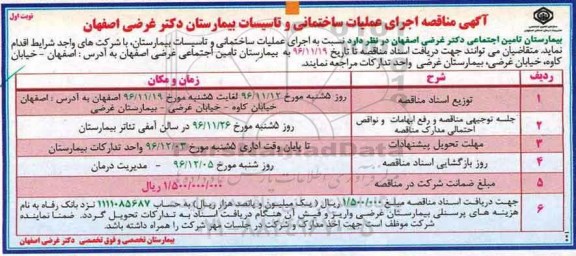 نوبت اول
آگهی مناقصه اجرای عملیات ساختمانی و تاسیسات بیمارستان دکتر غرضی اصفهان
بیمارستان تامین اجتماعی دکتر غرضی اصفهان در نظر دارد نسبت به اجرای عملیات ساختمانی و تاسیسات بیمارستان، با شرکت های واجد شرایط اقدام
نماید. متقاضیان می توانند جهت دریافت اسناد مناقصه تا تاریخ ۹۶/۱۱/۱۹ به بیمارستان تامین اجتماعی غرضی اصفهان به آدرس : اصفهان - خیابان
کاوه، خیابان غرضی، بیمارستان غرضی واحد تدارکات مراجعه نمایند.
ردیف شرح زمان و مکان
۱ توزیع اسناد مناقصه روز ۵شنبه مورخ ۹۶/۱۱/۱۲ لغایت ۵شنبه مورخ ۹۶/۱۱/۱۹ اصفهان به آدرس : اصفهان
خیابان کاوه - خیابان غرضی - بیمارستان غرضی
۲ جلسه توجیهی مناقصه و رفع ابهامات و نواقص
احتمالی مدارک مناقصه روز ۵شنبه مورخ ۹۶/۱۱/۲۶ در سالن آمفی تئاتر بیمارستان
۳ مهلت تحویل پیشنهادات تا پایان وقت اداری ۵شنبه مورخ ۹۶/۱۲/۰۳ واحد تدارکات بیمارستان
۴ روز بازگشایی اسناد مناقصه روز شنبه مورخ ۹۶/۱۲/۰۵ - مدیریت درمان
۵ مبلغ ضمانت شرکت در مناقصه ۱/۵۰۰/۰۰۰/۰۰۰ ریال
۶ جهت دریافت اسناد مناقصه مبلغ ۱/۵۰۰/۰۰۰ ریال (یک میلیون و پانصد هزار ریال) به حساب ۱۱۱۱۰۸۵۶۸۷ نزد بانک رفاه به نام
هزینه های پرسنلی بیمارستان غرضی واریز و فیش آن هنگام دریافت اسناد به تدارکات تحویل گردد. ضمنا نماینده
شرکت موظف است جهت اخذ مدارک و شرکت در جلسات مهر شرکت را همراه داشته باشد.
بیمارستان تخصصی و فوق تخصصی دکتر غرضی اصفهان